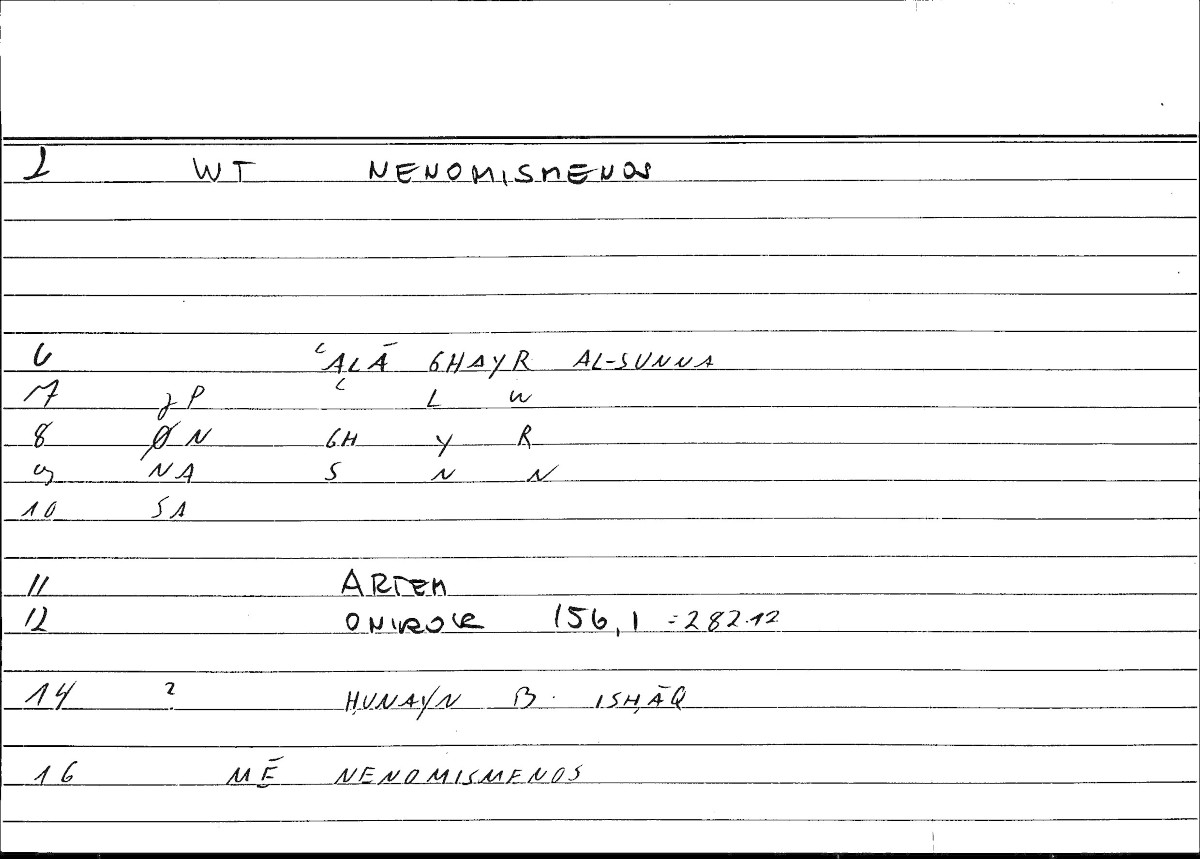 1 WT NENOMISMENOS
6 ʿALĀ GHAYR AL-SUNNA
7 gP ʿ L W
8 ØN GH Y R
9 NA S N N
10 SA
11 ARTEM
12 ONIROCR 156,1 =282.12
14 ? ḤUNAYN B. ISḤĀQ
16 MĒ NENOMISMENOS